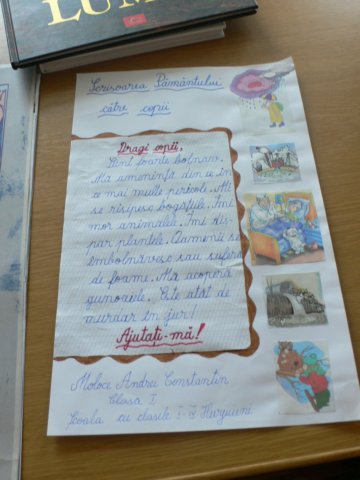 LUM
Scrisoarea Pământului
către copii
Dragi copii,
Sunt foarte bolnav.
Mă amenință din ce în
ce mai multe pericole. Mi
se risipesc bogățiile. Îmi
mor animalele. Îmi dis-
par plantele. Oamenii se
îmbolnăvesc sau suferă
de foame. Mă acoperă
gunoaiele. Este atât de
murdar în jur!
Ajutați-mă!
Moloce Andrei Constantin
Clasa I
Școala cu clasele I-IV